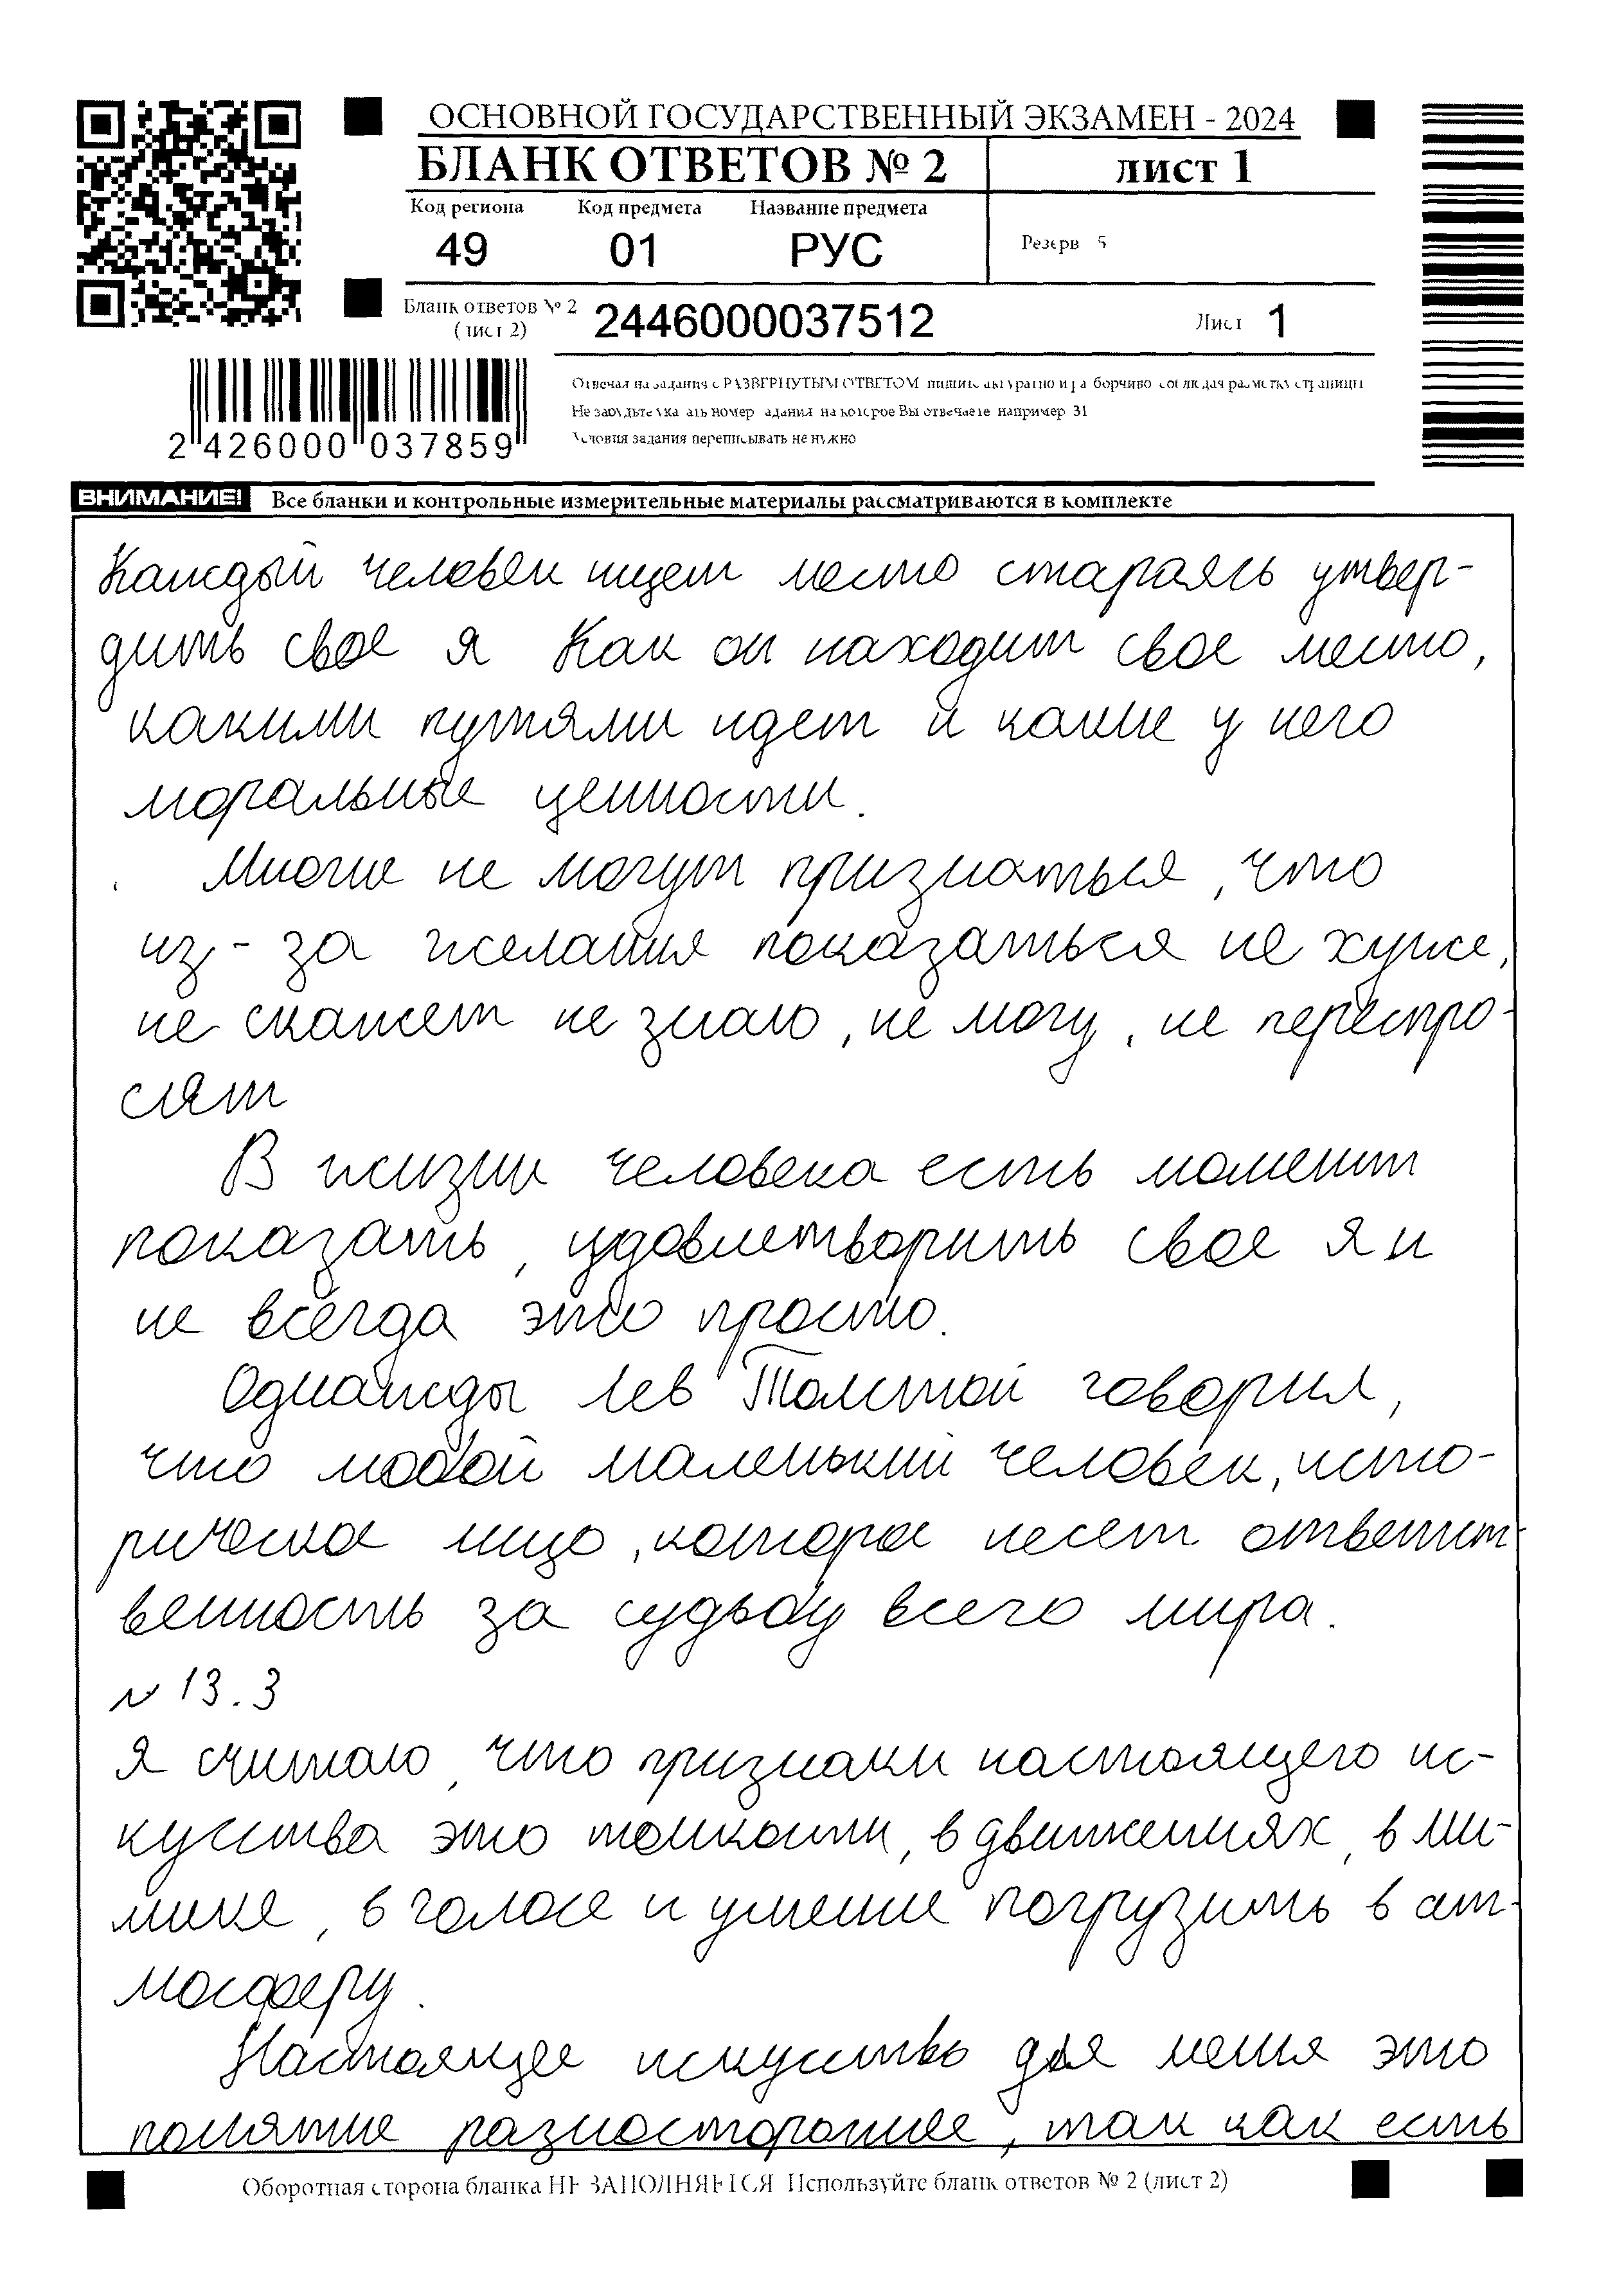 ОСНОВНОЙ ГОСУДАРСТВЕННЫЙ ЭКЗАМЕН - 2024
БЛАНК ОТВЕТОВ № 2
лист 1
Код региона Код предмета Название предмета
49 01 РУС
Резерв 5
Бланк ответов № 2
(лист 2)
2446000037512
Лист 1
2 426000 037859
Отвечая на задания с РАЗВЕРНУТЫМ ОТВЕТОМ пишите аккуратно и разборчиво соблюдая разметку страницы
Не забудьте указать номер задания на которое Вы отвечаете например 31
Условия задания переписывать не нужно
ВНИМАНИЕ! Все бланки и контрольные измерительные материалы рассматриваются в комплекте
Каждый человек ищет место стараясь утвер-
дить свое я Как он находит свое место,
какими путями идет и какие у него
моральные ценности.
Многие не могут признаться, что
из-за желания показаться не хуже,
не скажет не знаю, не могу, не перестро-
сят
В жизни человека есть момент
показать, удовлетворить свое я и
не всегда это просто.
Однажды Лев Толстой говорил,
что любой маленький человек, исто-
рическое лицо, которое несет ответст
венность за судьбу всего мира.
№ 13.3
Я считаю, что признаки настоящего ис-
кусства это тонкости, в движениях, в ми-
мике, в голосе и умение погрузить в ат-
мосферу.
Настоящее искусство для меня это
понятие разностороннее, так как есть
Оборотная сторона бланка НЕ ЗАПОЛНЯЕТСЯ Используйте бланк ответов № 2 (лист 2)